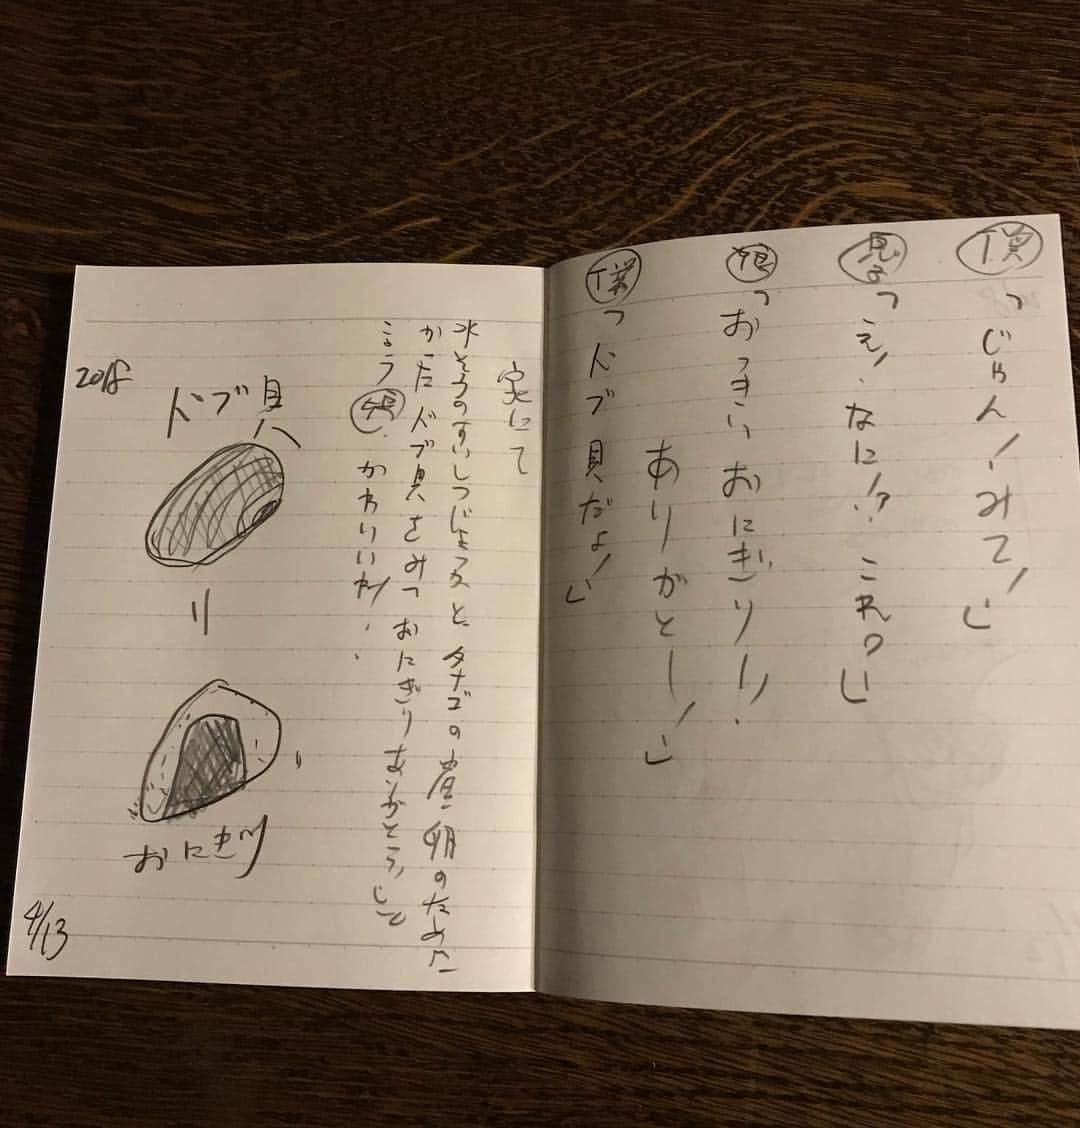 僕「じゃん!みて!」
息子「え!なに!?これ?」
「おっきい おにぎりー!
ありがとー!」
僕「ドブ貝だよ!」
家にて
水そうのすいしつじょうかと、タナゴの産卵のために
かった ドブ貝をみて おにぎりありがとう!」と
かわいいわ!
2018
ドブ貝
おにぎり
4/13